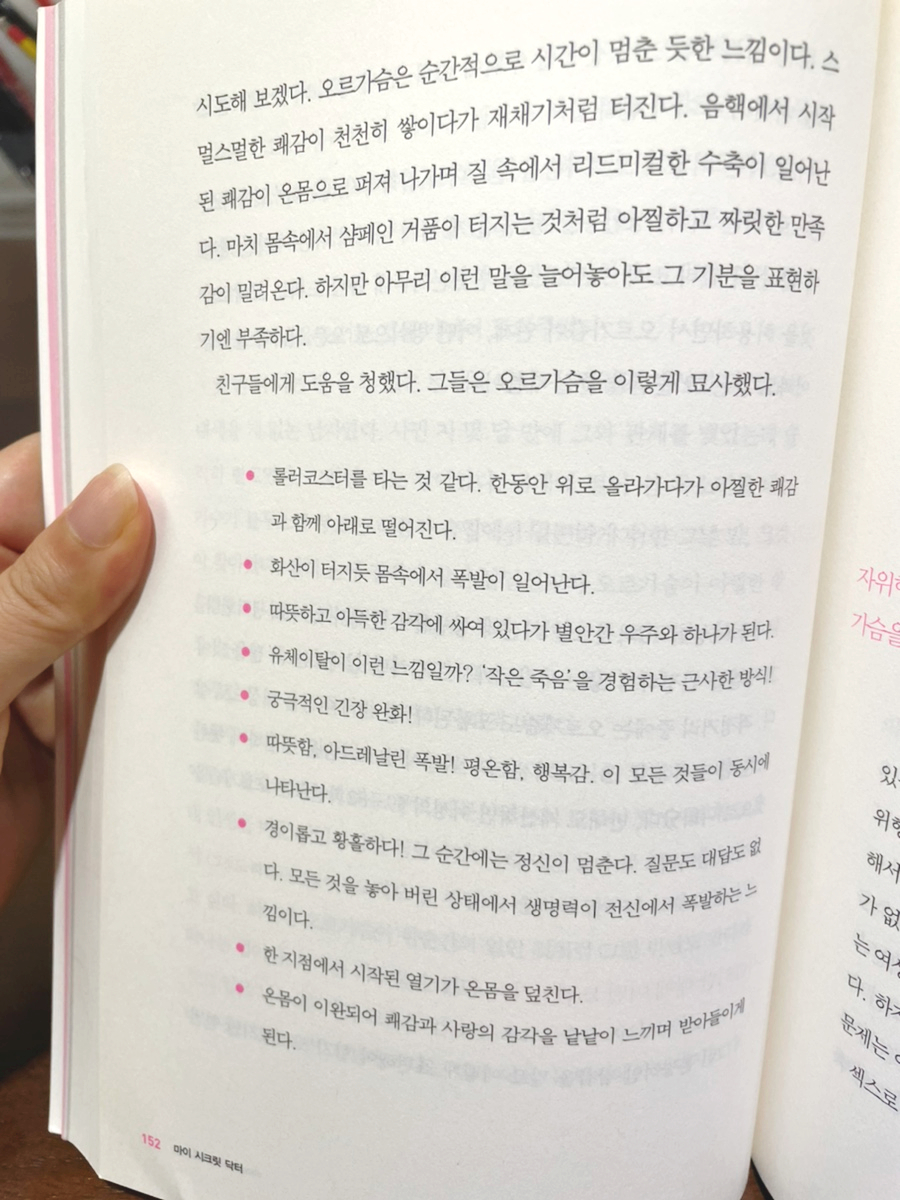 시도해 보겠다. 오르가슴은 순간적으로 시간이 멈춘 듯한 느낌이다. 스
멀스멀한 쾌감이 천천히 쌓이다가 재채기처럼 터진다. 음핵에서 시작
된 쾌감이 온몸으로 퍼져 나가며 질 속에서 리드미컬한 수축이 일어난
다. 마치 몸속에서 샴페인 거품이 터지는 것처럼 아찔하고 짜릿한 만족
감이 밀려온다. 하지만 아무리 이런 말을 늘어놓아도 그 기분을 표현하
기엔 부족하다.
친구들에게 도움을 청했다. 그들은 오르가슴을 이렇게 묘사했다.
• 롤러코스터를 타는 것 같다. 한동안 위로 올라가다가 아찔한 쾌감
과 함께 아래로 떨어진다.
• 화산이 터지듯 몸속에서 폭발이 일어난다.
• 따뜻하고 아득한 감각에 싸여 있다가 별안간 우주와 하나가 된다.
• 유체이탈이 이런 느낌일까? '작은 죽음'을 경험하는 근사한 방식!
• 궁극적인 긴장 완화!
• 따뜻함, 아드레날린 폭발! 평온함, 행복감. 이 모든 것들이 동시에
나타난다.
• 경이롭고 황홀하다! 그 순간에는 정신이 멈춘다. 질문도 대답도 없
다. 모든 것을 놓아 버린 상태에서 생명력이 전신에서 폭발하는 느
낌이다.
• 한 지점에서 시작된 열기가 온몸을 덮친다.
• 온몸이 이완되어 쾌감과 사랑의 감각을 낱낱이 느끼며 받아들이게
된다.
152 마이 시크릿 닥터
자위하
가슴을
있
위형
해서
가 없
는 여성
다. 하지
문제는
섹스로